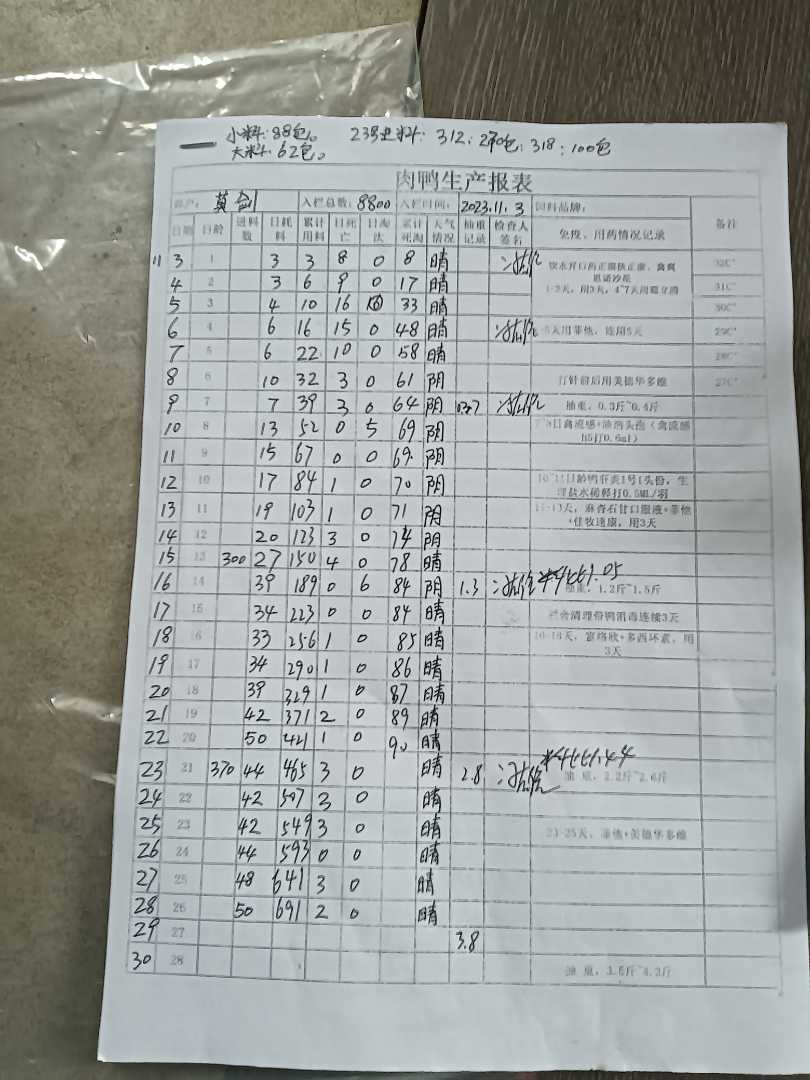 小料：88包。 23号进料：312：270包；318：100包
大料：62包。
肉鸭生产报表
入栏总数：8800 入栏时间：2023.11.3 饲料品牌：
日期 日龄 进料数 日耗料 累计用料 日死亡 日淘汰 累计死淘 天气情况 抽重记录 检查人签名 免疫、用药情况记录 备注
11 3 1 3 3 8 0 8 晴 32C°
4 2 3 6 9 0 17 晴 31C°
5 3 4 10 16 33 晴 1-3天，用3天，4-7天用 30C°
6 4 6 16 15 0 48 晴 连用5天 29C°
7 5 6 22 10 0 58 晴 28C°
8 6 10 32 3 0 61 阴 打针前后用美德华多维 27C°
9 7 7 39 3 0 64 阴 抽重，0.3斤~0.4斤
10 8 13 52 0 5 69 阴 （禽流感h5打0.6ml）
11 9 15 67 0 0 69 阴
12 10 17 84 1 0 70 阴 生理盐水稀释打0.5ML/羽
13 11 19 103 1 0 71 阴 麻杏石甘口服液+ 用3天
14 12 20 123 3 0 74 阴
15 13 300 27 150 4 0 78 晴
16 14 39 189 0 6 84 阴 1.3 抽重，1.2斤~1.5斤
17 15 34 223 0 0 84 晴 栏舍清理带鸭消毒连续3天
18 16 33 256 1 0 85 晴 16-18天，+多西环素，用3天
19 17 34 290 1 0 86 晴
20 18 39 329 1 0 87 晴
21 19 42 371 2 0 89 晴
22 20 50 421 1 0 90 晴
23 21 370 44 465 3 0 晴 2.8 抽重，2.2斤~2.6斤
24 22 42 507 3 0 晴
25 23 42 549 3 0 晴 23-25天，+美德华多维
26 24 44 593 0 0 晴
27 25 48 641 3 0 晴
28 26 50 691 2 0 晴
29 27 3.8
30 28 抽重，3.8斤~4.2斤